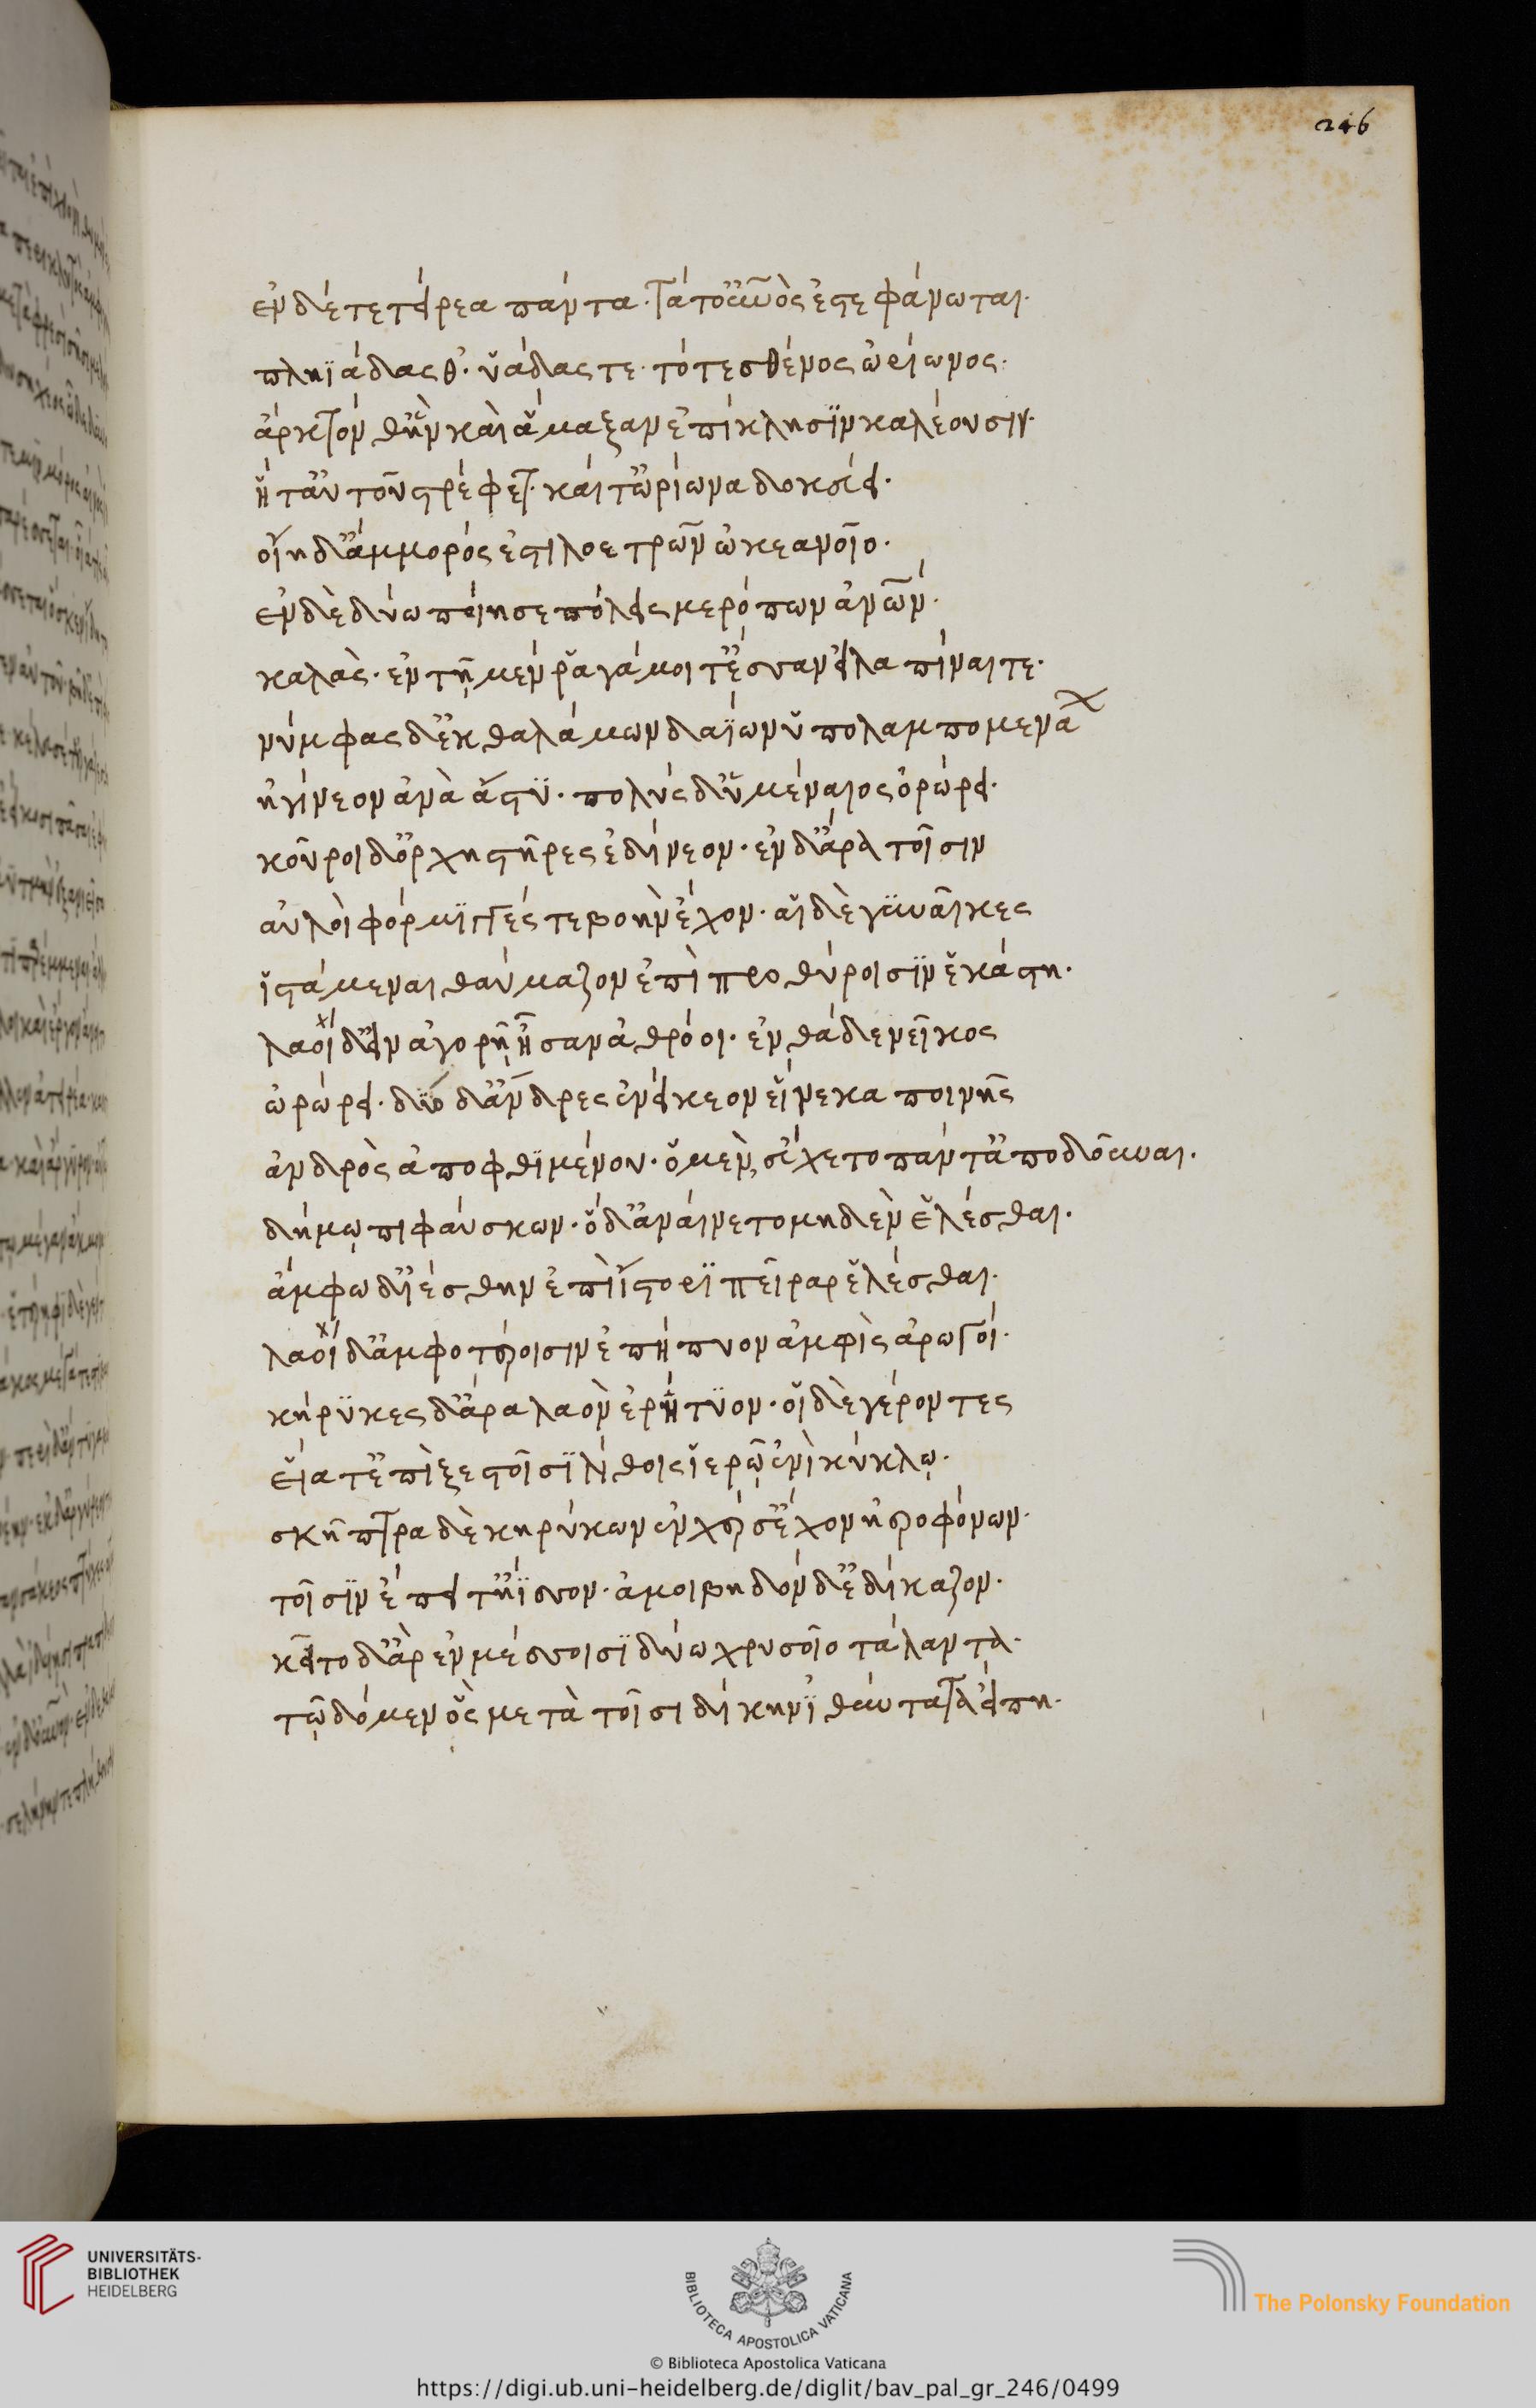 246
ἐν δέ τε τείρεα πάντα. τά τ' οὐνὸς ἐστεφάνωται.
πληϊάδας θ'. ὑάδας τε. τό τε σθένος ὠρίωνος.
ἄρκτον θ' ἣν καὶ ἅμαξαν ἐπίκλησϊν καλέουσιν.
ἥ τ' αὐτοῦ στρέφεται. καί τ' ὠρίωνα δοκεύει.
οἴη δ' ἄμμορός ἐστι λοετρῶν ὠκεανοῖο.
ἐν δὲ δύω ποίησε πόλεις μερόπων ἀνῶν.
καλάς. ἐν τῇ μέν ῥα γάμοι τ' ἔσσαν εἰλαπίναι τε.
νύμφας δ' ἐκ θαλάμων δαΐων ὑπολαμπομενάων
ἠγίνεον ἀνὰ ἄστϋ. πολὺς δ' ὑμέναιος ὀρώρει.
κοῦροι δ' ὀρχηστῆρες ἐδίνεον. ἐν δ' ἄρα τοῖσιν
αὐλοὶ φόρμϊγγές τε βοὴν ἔχον. αἱ δὲ γυναῖκες
ἱστάμεναι θαύμαζον ἐπὶ προθύροισϊν ἑκάστη.
λαοὶ δ' εἰν ἀγορῇ ἦσαν ἀθρόοι. ἔνθα δὲ νεῖκος
ὠρώρει. δύο δ' ἄνδρες ἐνείκεον εἵνεκα ποινῆς
ἀνδρὸς ἀποφθϊμένου. ὁ μὲν εὔχετο πάντ' ἀποδοῦναι.
δήμῳ πιφαύσκων. ὁ δ' ἀναίνετο μηδὲν ἑλέσθαι.
ἄμφω δ' ἱέσθην ἐπὶ ἵστορϊ πεῖραρ ἑλέσθαι.
λαοὶ δ' ἀμφοτέροισιν ἐπήπυον ἀμφὶς ἀρωγοί.
κήρϋκες δ' ἄρα λαὸν ἐρήτϋον. οἱ δὲ γέροντες
εἵατ' ἐπὶ ξεστοῖσϊ λίθοις ἱερῷ ἐνὶ κύκλῳ.
σκῆπτρα δὲ κηρύκων ἐν χέρσ' ἔχον ἠεροφόνων.
τοῖσϊν ἔπειτ' ἤϊσσον. ἀμοιβηδὸν δ' ἐδίκαζον.
κεῖτο δ' ἄρ ἐν μέσσοισϊ δύω χρυσοῖο τάλαντα.
τῷ δόμεν ὃς μετὰ τοῖσι δίκην ἰθύντατα εἴπη.
UNIVERSITÄTS-
BIBLIOTHEK
HEIDELBERG
BIBLIOTECA APOSTOLICA VATICANA
© Biblioteca Apostolica Vaticana
The Polonsky Foundation
https://digi.ub.uni-heidelberg.de/diglit/bav_pal_gr_246/0499